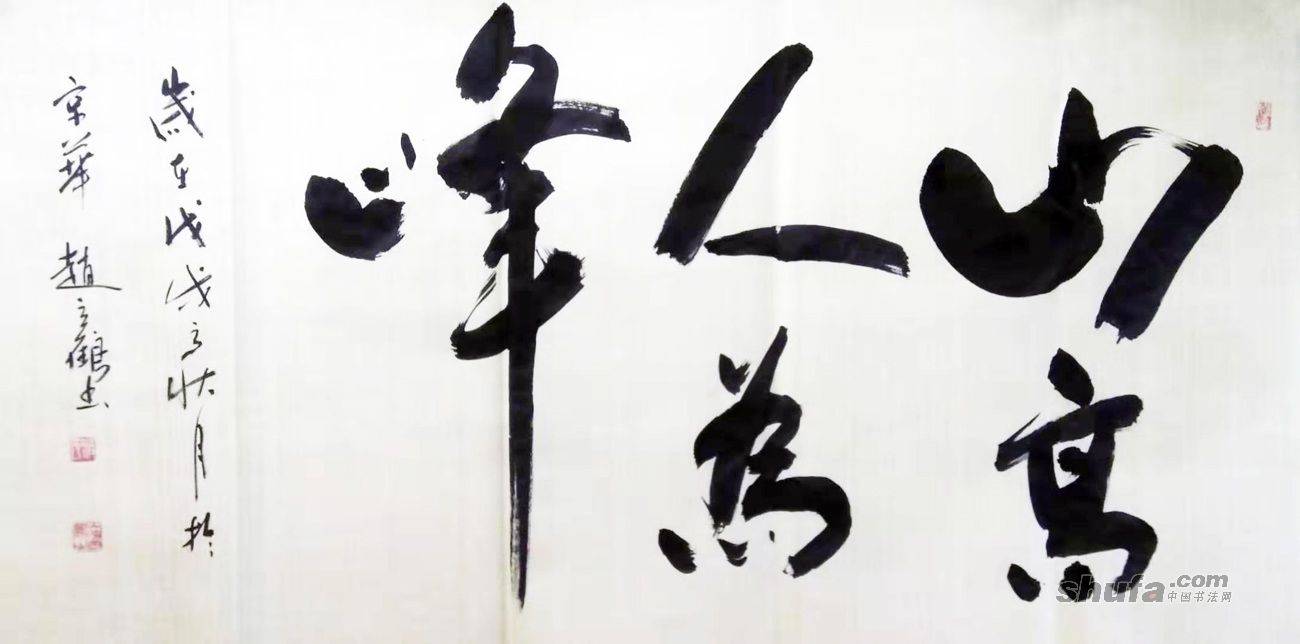 山高
人為
峰
歲在戊戌之秋月於
京華 趙鶴书
shufa.com
中国书法网